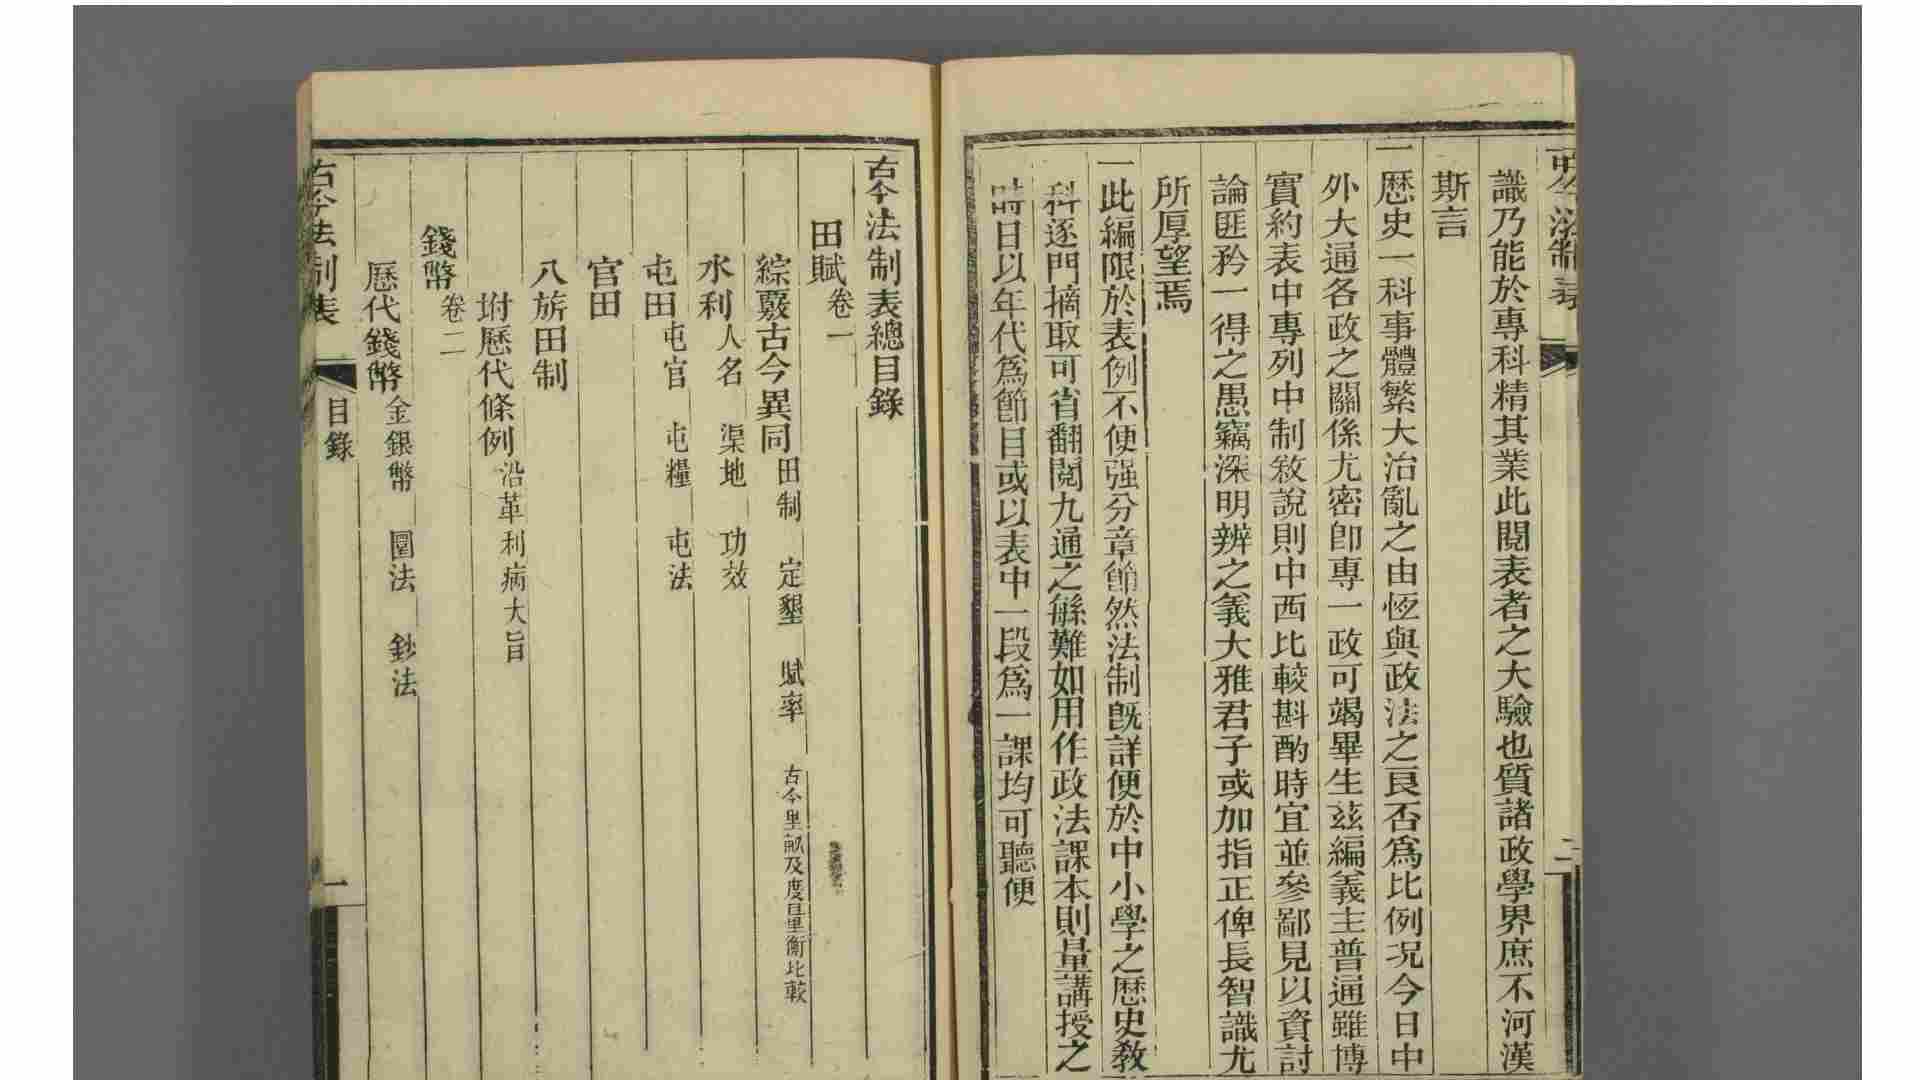 古今法制表
二
識乃能於專科精其業此閱表者之大驗也質諸政學界庶不河漢
斯言
一歷史一科事體繁大治亂之由恆與政法之良否爲比例况今日中
外大通各政之關係尤密卽專一政可竭畢生茲編義主普通雖博
實約表中專列中制敘說則中西比較斟酌時宜並參鄙見以資討
論匪矜一得之愚竊深明辨之義大雅君子或加指正俾長智識尤
所厚望焉
一此編限於表例不便强分章節然法制旣詳便於中小學之歷史敎
科逐門摘取可省翻閱九通之繇難如用作政法課本則量講授之
時日以年代爲節目或以表中一段爲一課均可聽便
古今法制表總目錄
田賦卷一
綜覈古今異同 田制 定墾 賦率 古今里畝及度量衡比較
水利 人名 渠地 功效
屯田 屯官 屯糧 屯法
官田
八旂田制
坿歷代條例 沿革利病大旨
錢幣卷二
歷代錢幣 金銀幣 圜法 鈔法
古今法制表
目錄
一